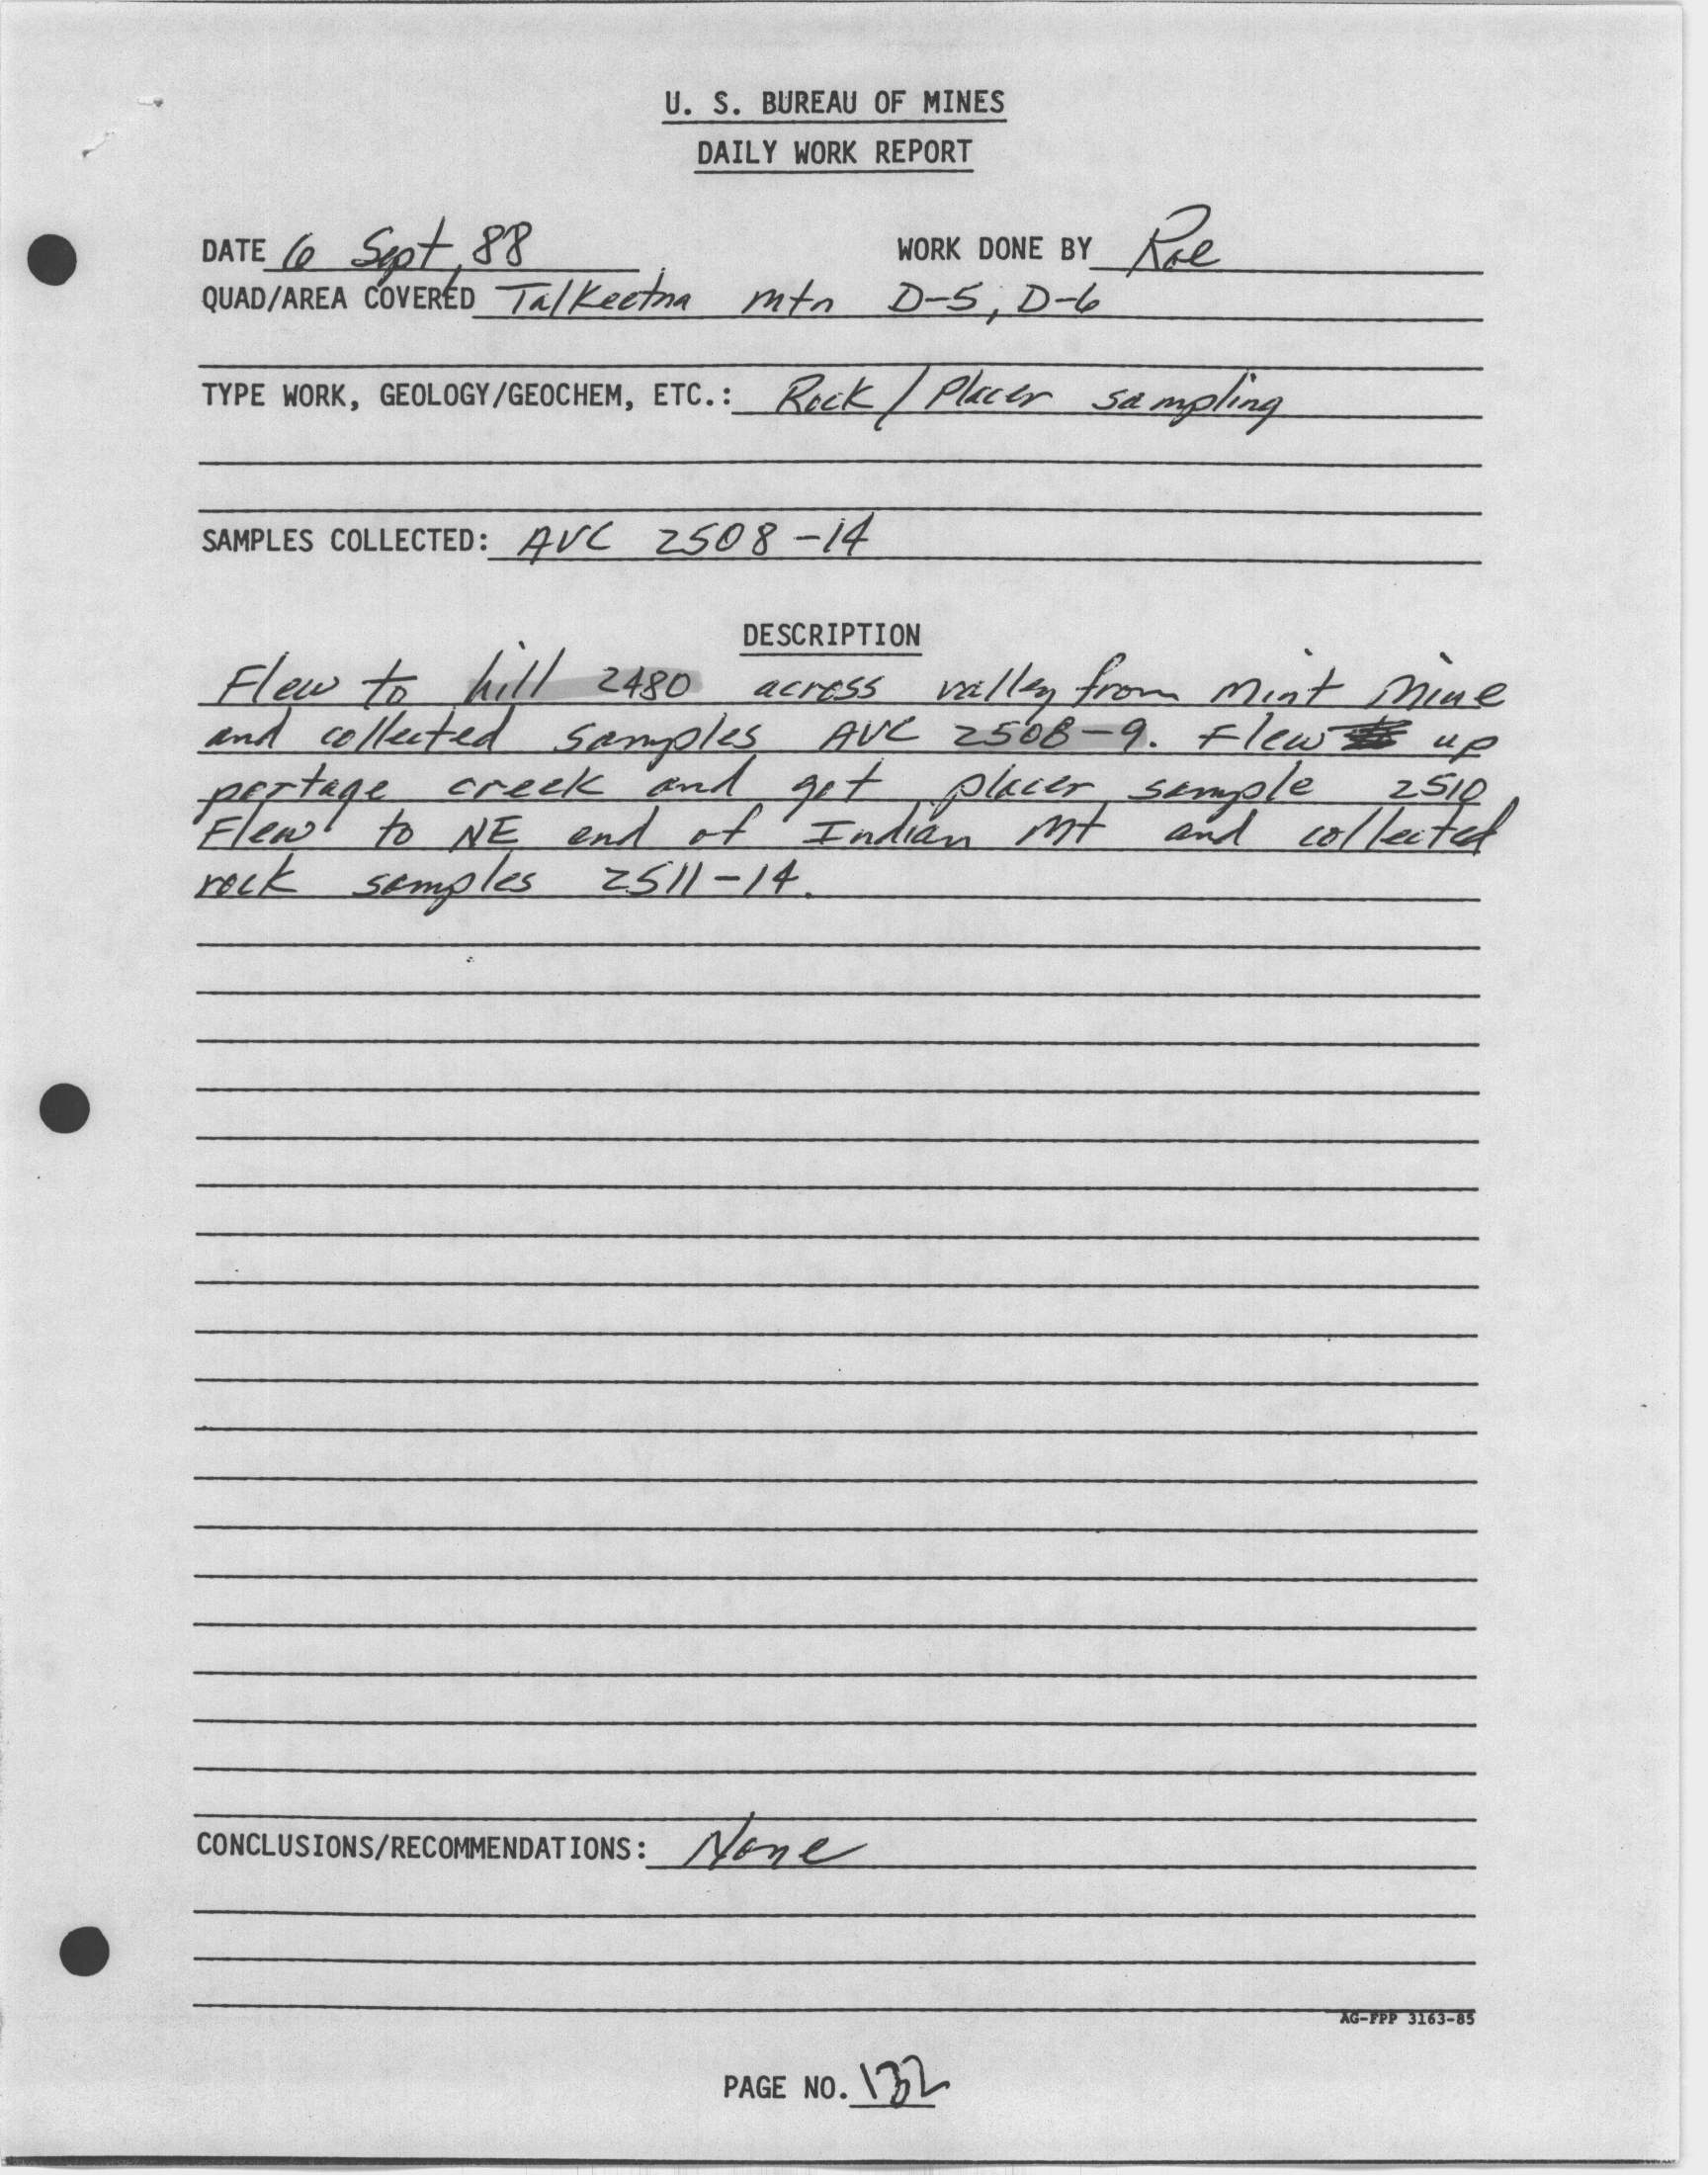 U. S. BUREAU OF MINES
DAILY WORK REPORT
DATE 6 Sept, 88 WORK DONE BY Roe
QUAD/AREA COVERED Talkeetna Mtn D-5, D-6
TYPE WORK, GEOLOGY/GEOCHEM, ETC.: Rock / Placer sampling
SAMPLES COLLECTED: AVC 2508-14
DESCRIPTION
Flew to hill 2480 across valley from Mint Mine
and collected samples AVC 2508-9. Flew up
portage creek and got placer sample 2510.
Flew to NE end of Indian Mt and collected
rock samples 2511-14.
CONCLUSIONS/RECOMMENDATIONS: None
AG-FPP 3163-85
PAGE NO. 132